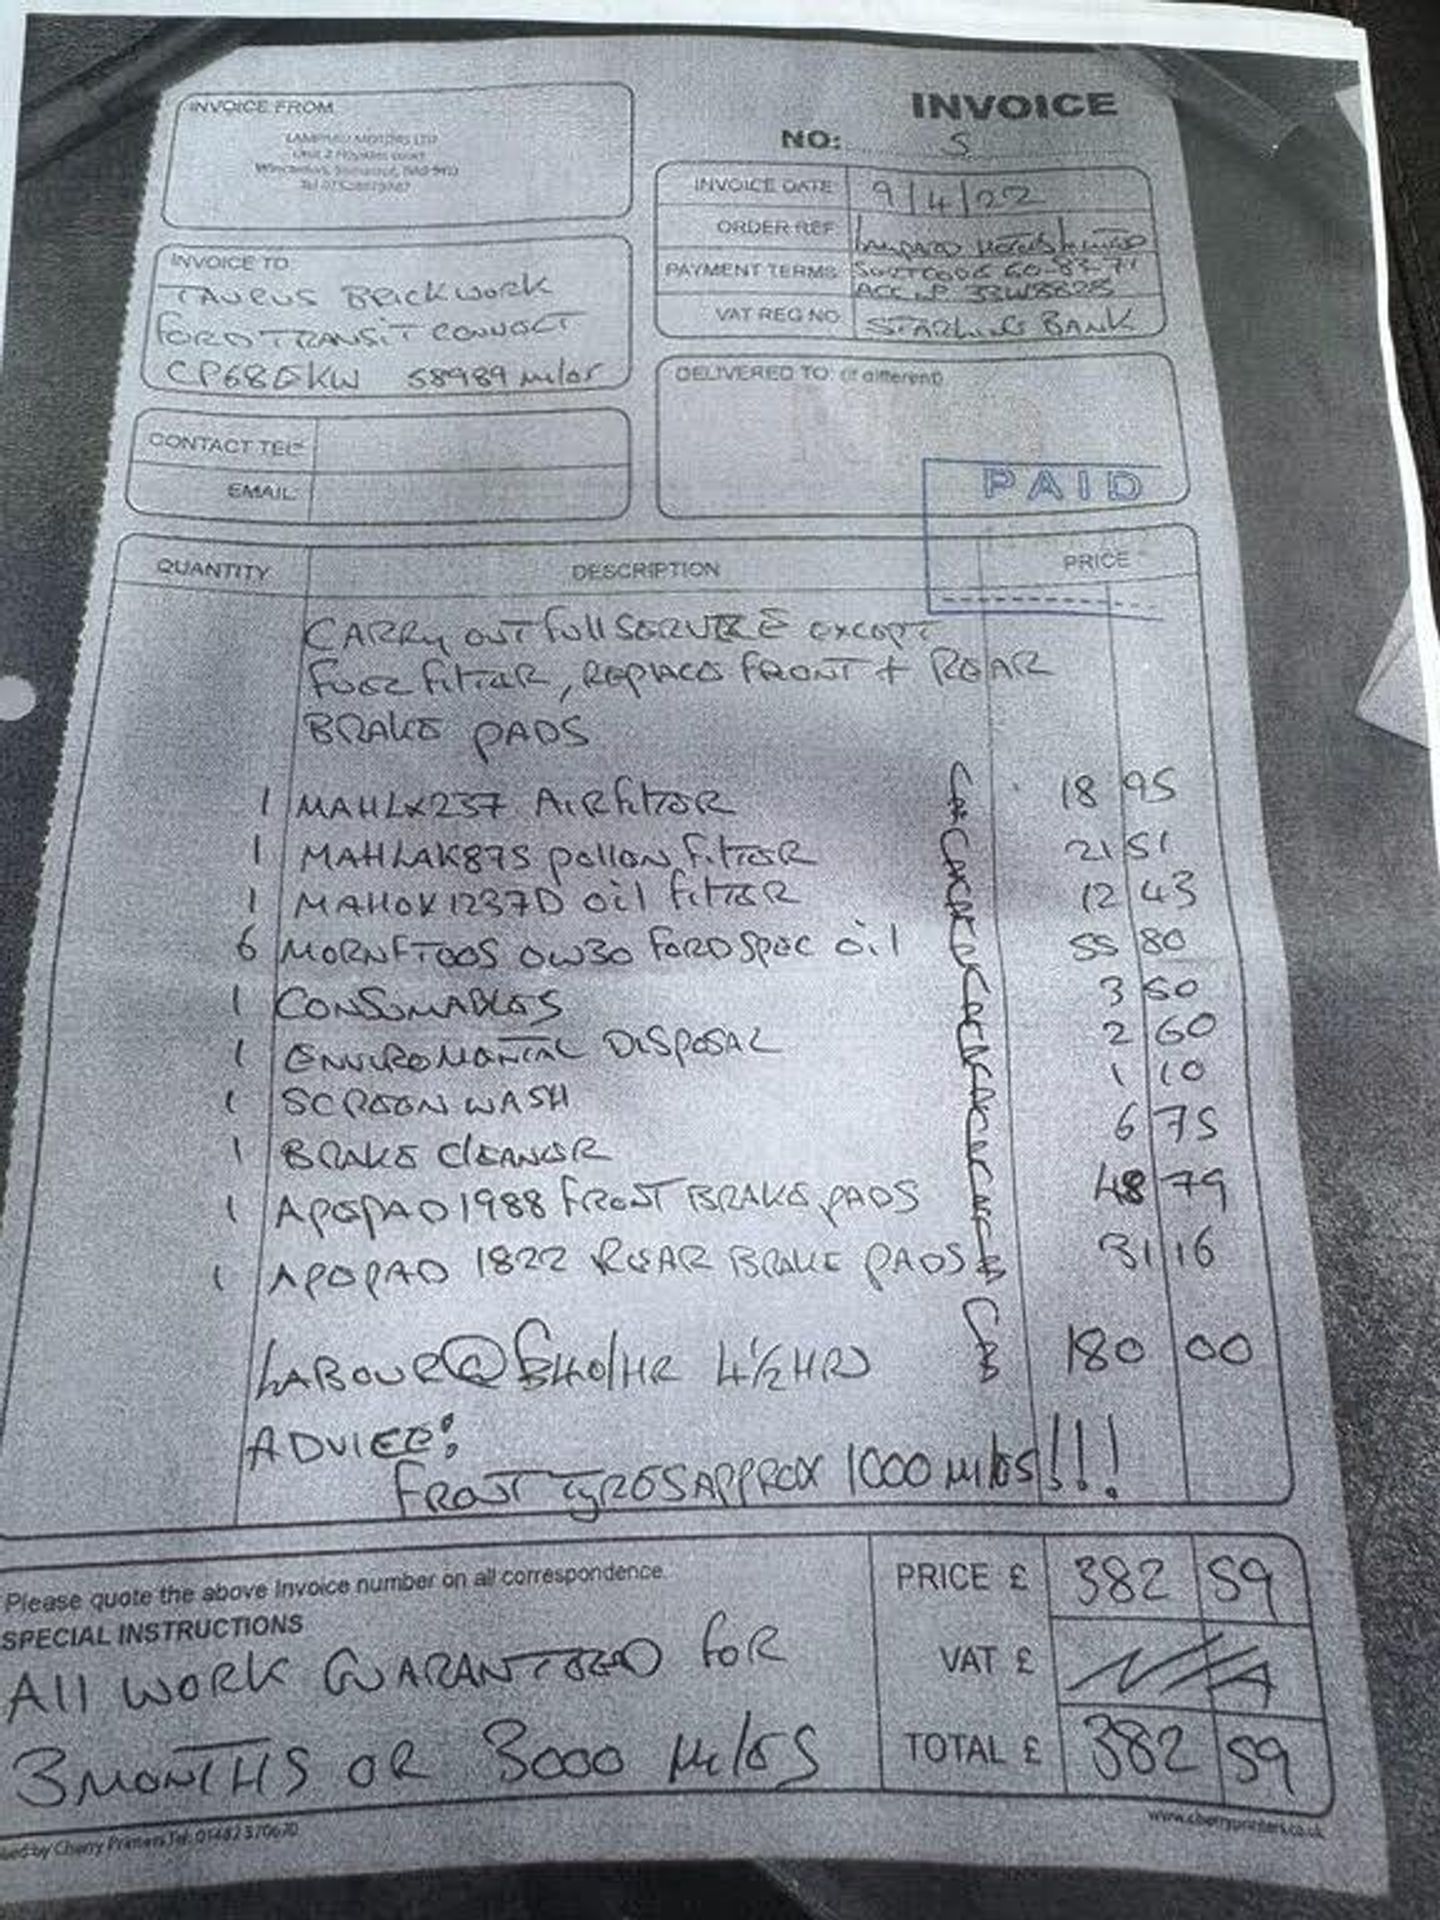 INVOICE FROM
LAMPARD MOTORS LTD
INVOICE
NO: 5
INVOICE DATE 9/4/22
ORDER REF LAMPARD MOTORS LIMITED
PAYMENT TERMS: SORTCODE 60-83-71
ACC Nº
VAT REG NO. STARLING BANK
INVOICE TO
TAURUS BRICKWORK
FORD TRANSIT CONNECT
CP68 58989 miles
DELIVERED TO: (if different)
CONTACT TEL:
EMAIL:
PAID
QUANTITY DESCRIPTION PRICE
CARRY OUT FULL SERVICE EXCEPT
FUEL FILTER, REPLACE FRONT + REAR
BRAKE PADS
1 MAHLX237 AIR FILTER 18 95
1 MAHLAK875 pollen FILTER 21 51
1 MAHOX1237D oil FILTER 12 43
6 MORNFT005 0W30 FORD SPEC oil 55 80
1 CONSUMABLES 3 50
1 ENVIROMENTAL DISPOSAL 2 60
1 SCREEN WASH 1 10
1 BRAKE CLEANER 6 75
1 APOPAD 1988 FRONT BRAKE PADS 48 79
1 APOPAD 1822 REAR BRAKE PADS 31 16
LABOUR @ £40/HR 4½ HRS 180 00
ADVICE:
FRONT TYRES APPROX 1000 miles!!!
Please quote the above Invoice number on all correspondence.
SPECIAL INSTRUCTIONS
All WORK GUARANTEED FOR
3 MONTHS OR 3000 MILES
PRICE £ 382 59
VAT £ N/A
TOTAL £ 382 59
by Cherry Printers Tel: 01482 370670
www.cherryprinters.co.uk